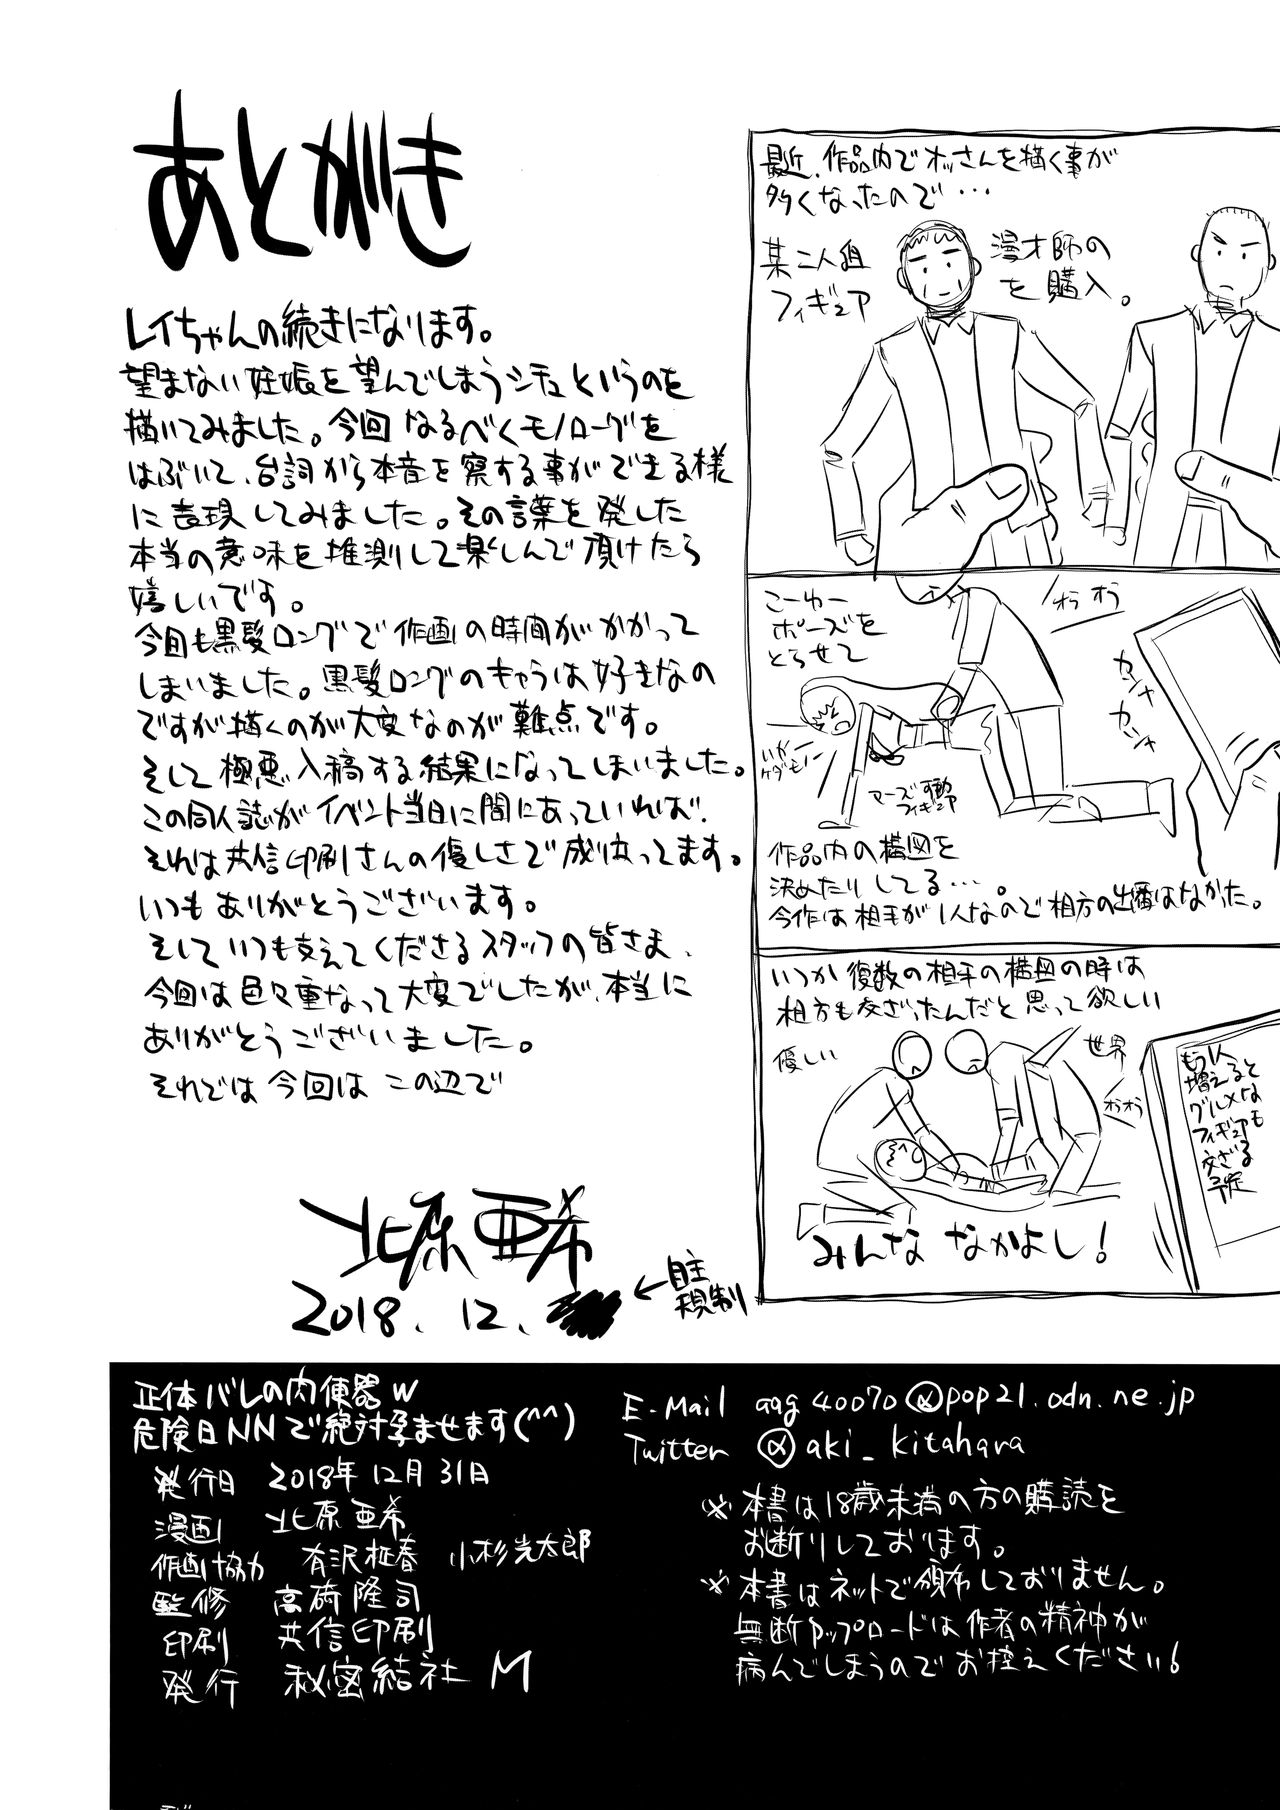 あとがき
レイちゃんの続きになります。
望まない妊娠を望んでしまうシチュというのを
描いてみました。今回なるべくモノローグを
はぶいて、台詞から本音を察する事ができる様
に表現してみました。その言葉を発した
本当の意味を推測して楽しんで頂けたら
嬉しいです。
今回も黒髪ロングで作画の時間がかかって
しまいました。黒髪ロングのキャラは好きなの
ですが描くのが大変なのが難点です。
そして極悪入稿する結果になってしまいました。
この同人誌がイベント当日に間にあっていれば、
それは共信印刷さんの優しさで成り立ってます。
いつもありがとうございます。
そしていつも支えてくださるスタッフの皆さま、
今回は色々重なって大変でしたが、本当に
ありがとうございました。
それでは今回はこの辺で
北原亜希
2018.12.
←自主
規制
最近、作品内でオッさんを描く事が
多くなったので…
某二人組
漫才師の
フィギュア
を購入。
こーゆー
ポーズを
とらせて
オラオラ
カシャ
カシャ
いやー
ケダモノー
可動
フィギュア
作品内の構図を
決めたりしてる…。
今作は相手が1人なので相方の出番はなかった。
いつか複数の相手の構図の時は
相方も交ざったんだと思って欲しい
優しい
世界
オラオラ
もう1人
増えると
グルメな
フィギュアも
交ざる
予定
みんななかよし!
正体バレの肉便器w
危険日NNで絶対孕ませます(^^)
発行日 2018年12月31日
漫画 北原亜希
作画協力 有沢柾春 小杉光太郎
監修 高碕隆司
印刷 共信印刷
発行 秘密結社M
E-Mail aag40070@pop21.odn.ne.jp
Twitter @aki_kitahara
※本書は18歳未満の方の購読を
お断りしております。
※本書はネットで頒布しておりません。
無断アップロードは作者の精神が
病んでしまうのでお控えください!